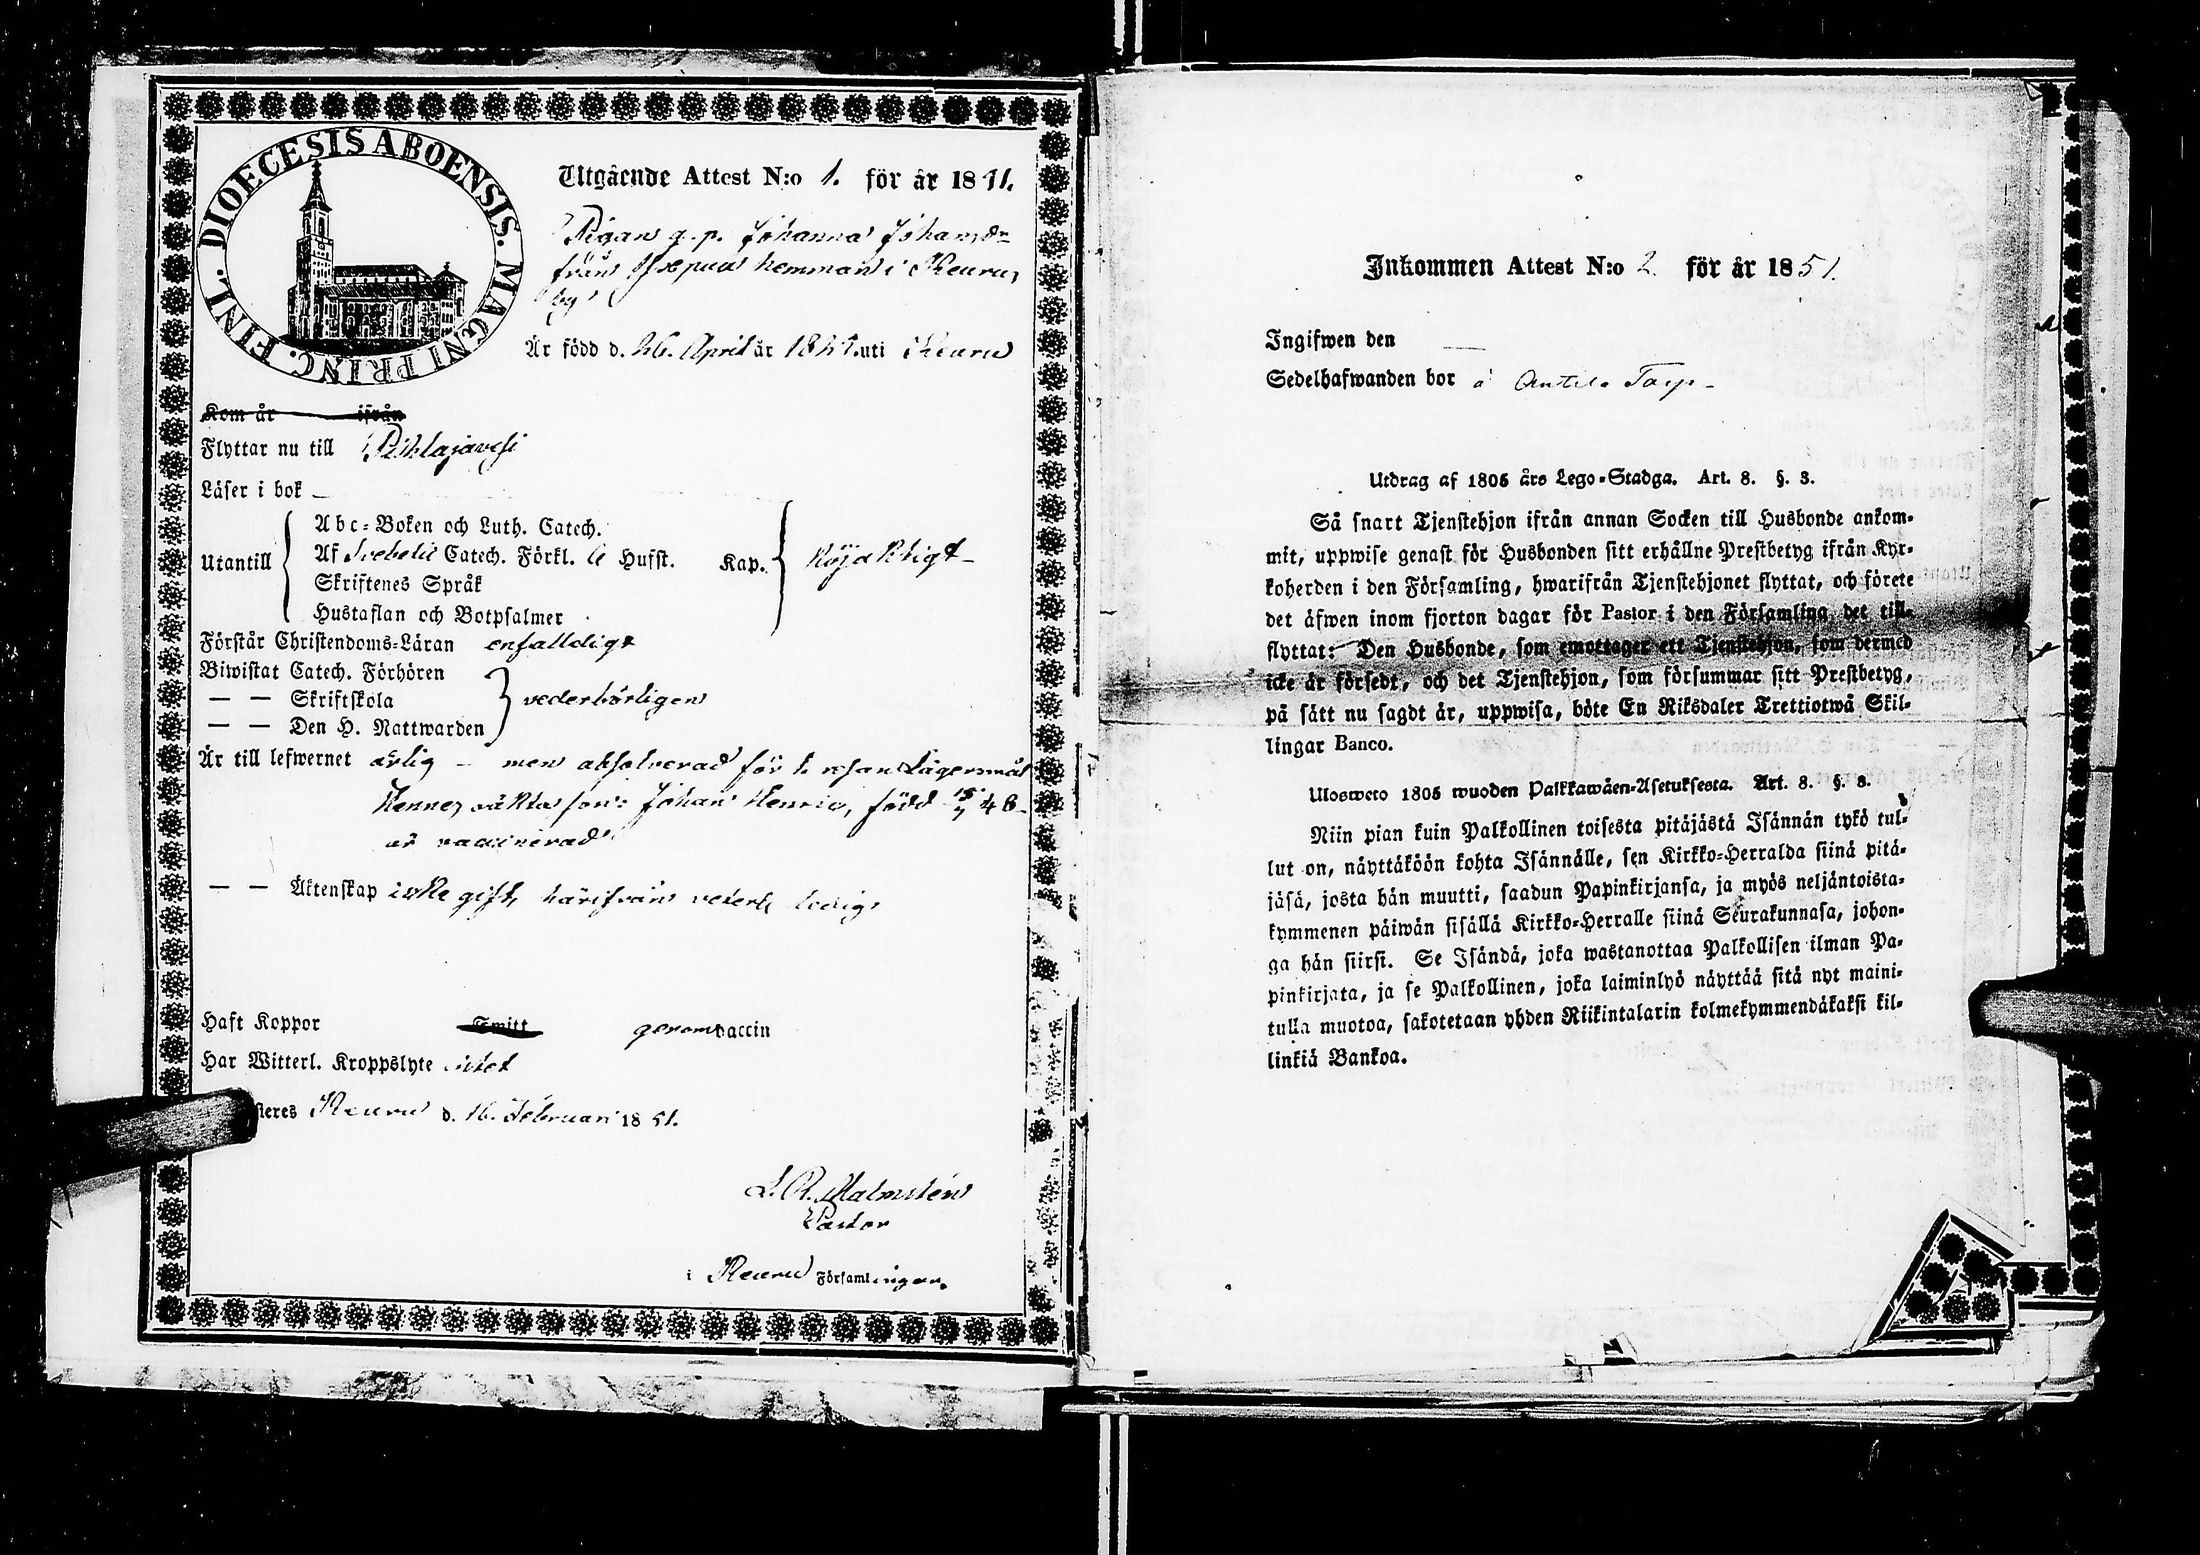 DIOECESIS ABOENSIS. MAGNI PRINC. FINL.
Utgående Attest N:o 1. för år 1851.
Pigan q. p. Johanna Johansdr
från hemman i Keuru
by
Är född d. 26. April år uti Keuru
Kom år ifrån
Flyttar nu till Pihlajavesi
Läser i bok —
Utantill
Abc-Boken och Luth. Catech.
Af Svebelii Catech. Förkl. Hufst. Kap. nöjaktigt
Skriftenes Språk
Hustaflan och Botpsalmer
Förstår Christendoms-Läran enfalldigt
Biwistat Catech. Förhören
— — Skriftskola vederbörligen
— — Den H. Nattwarden
Är till lefwernet ärlig – men absolverad för 1. resan Lägersmål
Hennes oäkta son: Johan Henric, född 48
är vaccinerad
— — Äktenskap icke gift, härifrån vederb. ledig
Haft Koppor Smitt genom vaccin
Har Witterl. Kroppslyte intet
steres Keuru d. 16. Februari 1851.
L. R. Malmstén
Pastor
i Keuru Församlingen.
Inkommen Attest N:o 2. för år 1851.
Ingifwen den —
Sedelhafwanden bor å Antila Torp
Utdrag af 1805 års Lego-Stadga. Art. 8. §. 3.
Så snart Tjenstehjon ifrån annan Socken till Husbonde ankom-
mit, uppwise genast för Husbonden sitt erhållne Prestbetyg ifrån Kyr-
koherden i den Församling, hwarifrån Tjenstehjonet flyttat, och förete
det äfwen inom fjorton dagar för Pastor i den Församling det till-
flyttat: Den Husbonde, som emottager ett Tjenstehjon, som dermed
icke är försedt, och det Tjenstehjon, som försummar sitt Prestbetyg,
på sätt nu sagdt är, uppwisa, böte En Riksdaler Trettiotwå Skil-
lingar Banco.
Ulosweto 1805 wuoden Palkkawäen-Asetuksesta. Art. 8. §. 8.
Niin pian kuin Palkollinen toisesta pitäjästä Isännän tykö tul-
lut on, näyttäköön kohta Isännälle, sen Kirkko-Herralda siinä pitä-
jäsä, josta hän muutti, saadun Papinkirjansa, ja myös neljäntoista-
kymmenen päiwän sisällä Kirkko-Herralle siinä Seurakunnasa, johon-
ga hän siirsi. Se Isändä, joka wastanottaa Palkollisen ilman Pa-
pinkirjata, ja se Palkollinen, joka laiminlyö näyttää sitä nyt maini-
tulla muotoa, sakotetaan yhden Riikintalarin kolmekymmendäkaksi kil-
linkiä Bankoa.